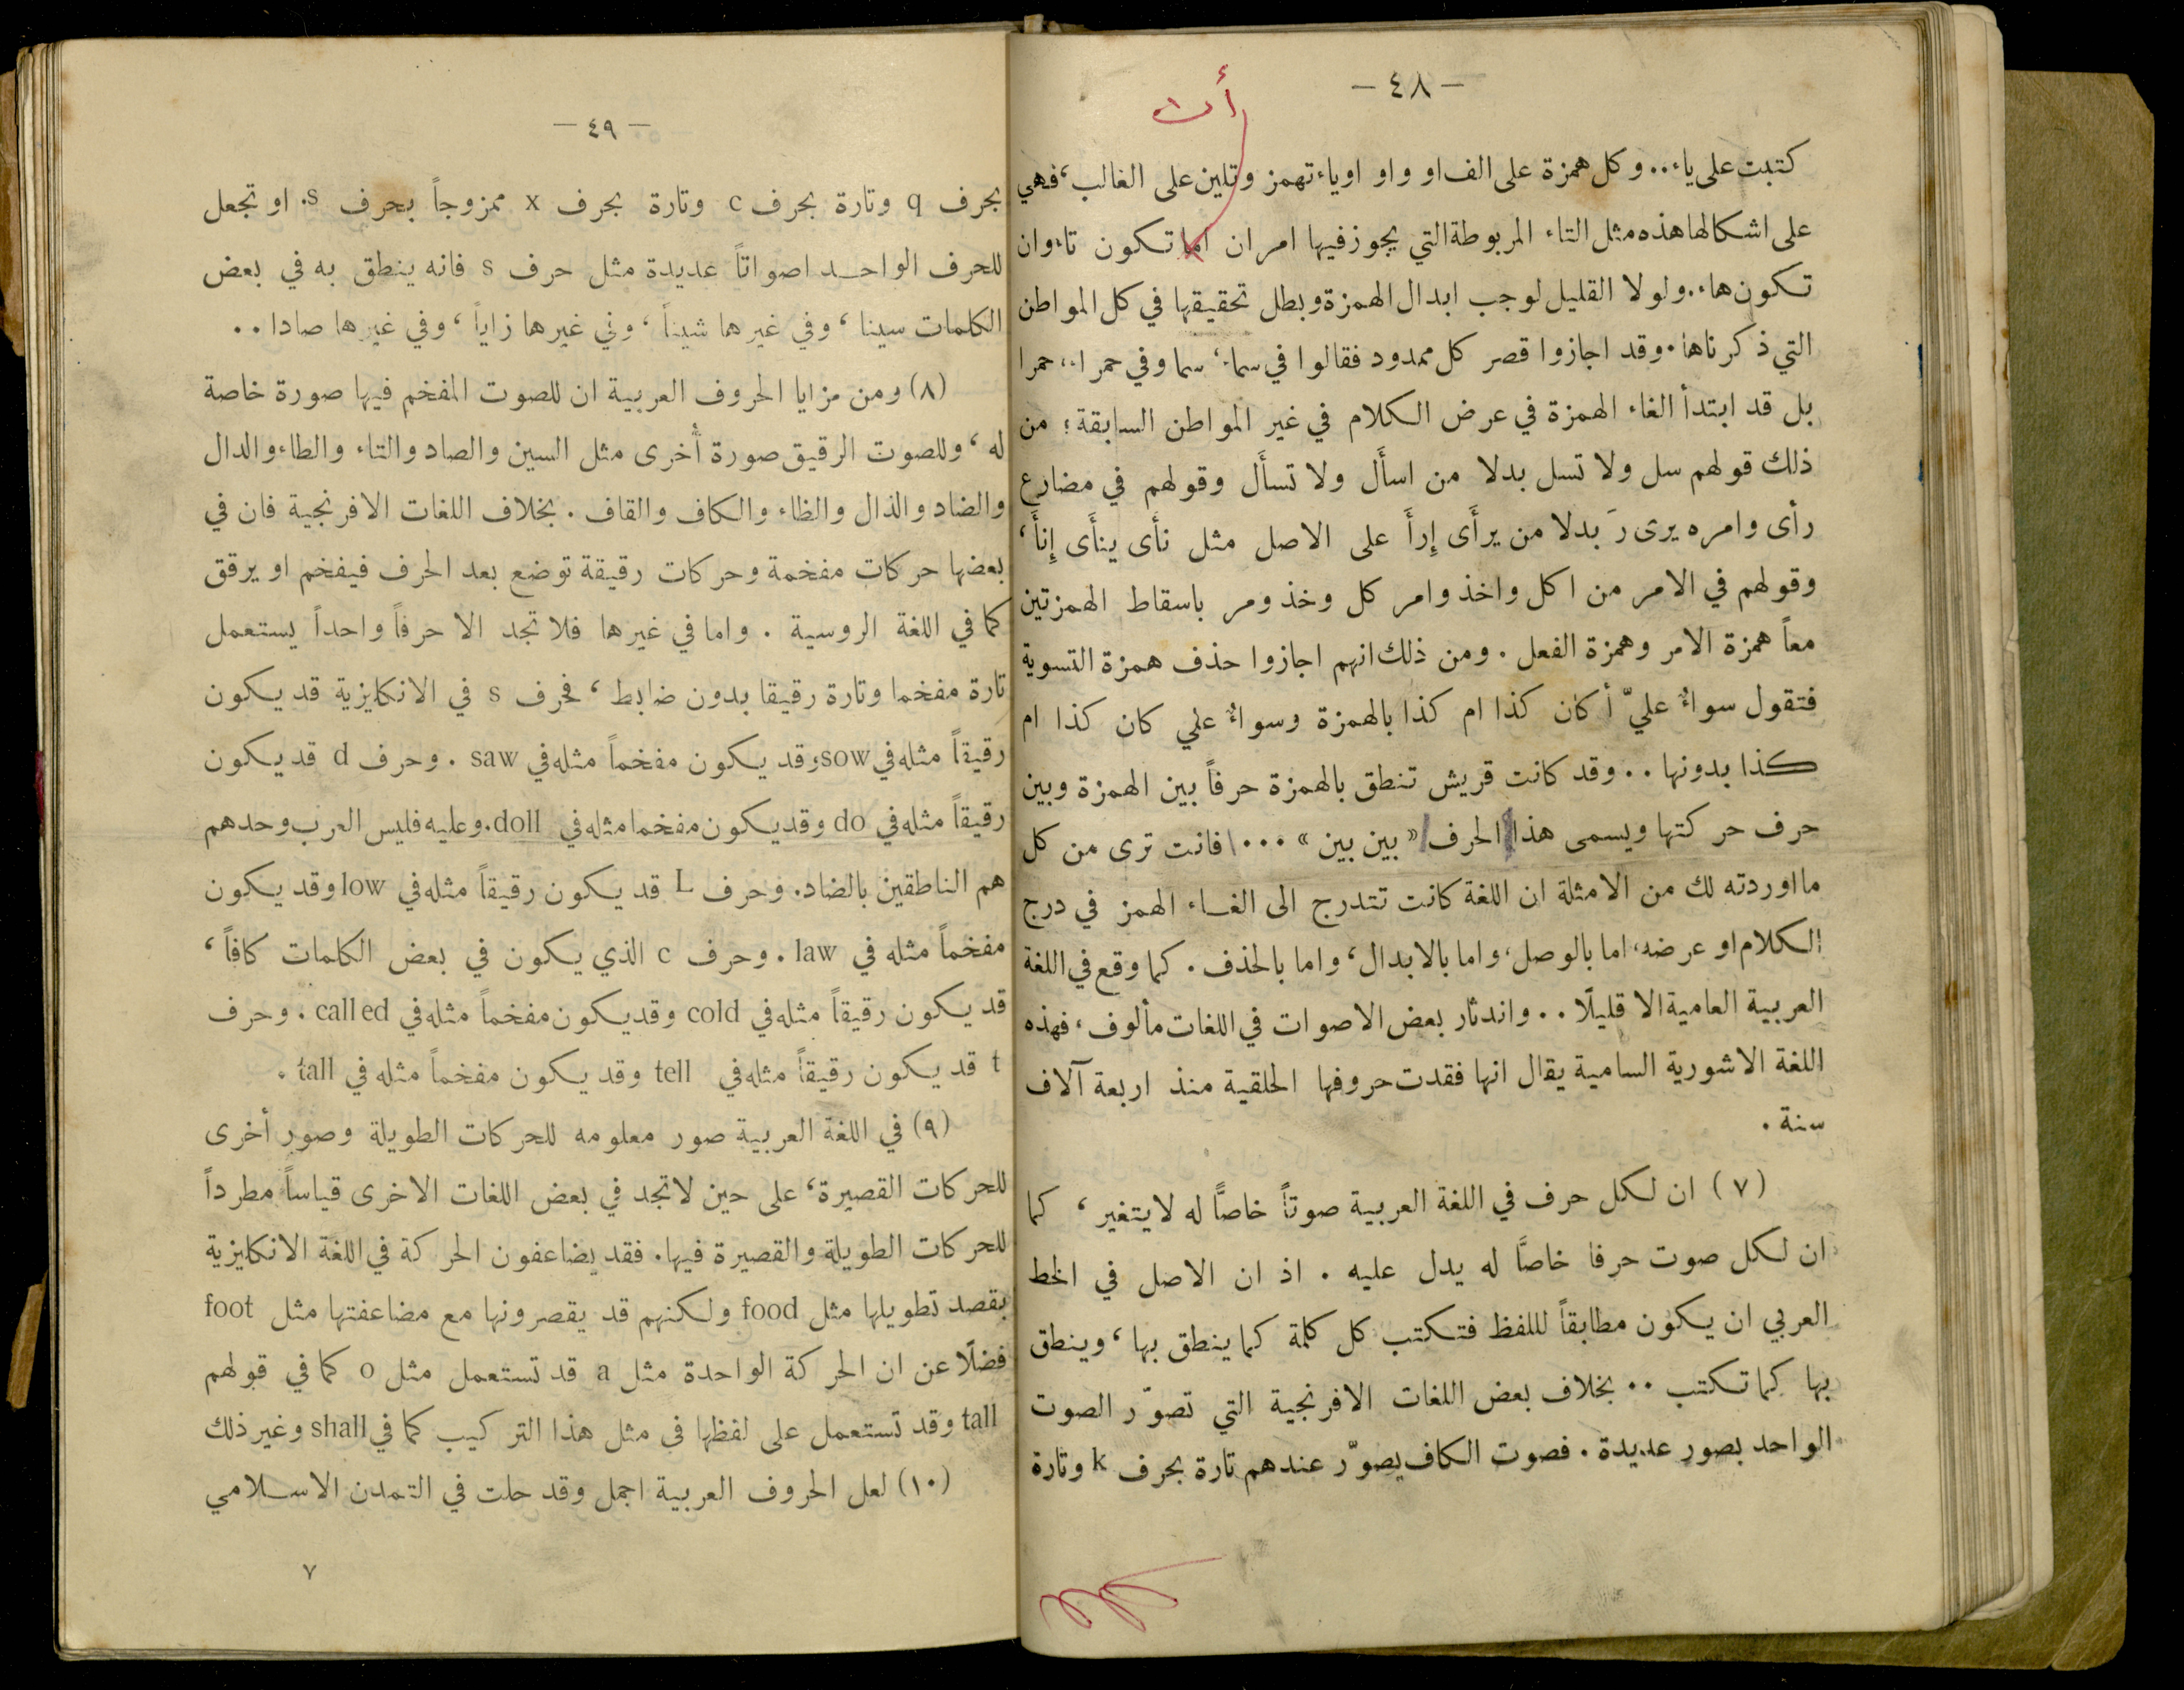 — ٤٨ —
أن
كتبت على ياء.. وكل همزة على الف او واو اوياء تهمز وتلين على الغالب، فهي
على اشكالها هذه مثل التاء المربوطة التي يجوز فيها امران اما تكون تاء وان
تكون هاء.. ولولا القليل لوجب ابدال الهمزة وبطل تحقيقها في كل المواطن
التي ذكرناها. وقد اجازوا قصر كل ممدود فقالوا في سماء، سما وفي حمراء، حمرا
بل قد ابتدأ الغاء الهمزة في عرض الكلام في غير المواطن السابقة؛ من
ذلك قولهم سل ولا تسل بدلا من اسأَل ولا تسأَل وقولهم في مضارع
رأى وامره يرى رَ بدلا من يرأَى إِرأَ على الاصل مثل نأى ينأَى إِنأَ،
وقولهم في الامر من اكل واخذ وامر كل وخذ ومر باسقاط الهمزتين
معاً همزة الامر وهمزة الفعل . ومن ذلك انهم اجازوا حذف همزة التسوية
فتقول سواءٌ عليّ أكان كذا ام كذا بالهمزة وسواءٌ علي كان كذا ام
كذا بدونها .. وقد كانت قريش تنطق بالهمزة حرفاً بين الهمزة وبين
حرف حركتها ويسمى هذا الحرف « بين بين » ... فانت ترى من كل
ما اوردته لك من الامثلة ان اللغة كانت تتدرج الى الغاء الهمز في درج
الكلام او عرضه، اما بالوصل، واما بالابدال، واما بالحذف . كما وقع في اللغة
العربية العامية الا قليلًا .. واندثار بعض الاصوات في اللغات مألوف، فهذه
اللغة الاشورية السامية يقال انها فقدت حروفها الحلقية منذ اربعة آلاف
سنة .
(٧) ان لكل حرف في اللغة العربية صوتاً خاصًّا له لا يتغير، كما
ان لكل صوت حرفا خاصًّا له يدل عليه . اذ ان الاصل في الخط
العربي ان يكون مطابقاً لللفظ فتكتب كل كلمة كما ينطق بها، وينطق
بها كما تكتب .. بخلاف بعض اللغات الافرنجية التي تصوّر الصوت
الواحد بصور عديدة . فصوت الكاف يصوّر عندهم تارة بحرف k وتارة
— ٤٩ —
بحرف q وتارة بحرف c وتارة بحرف x ممزوجاً بحرف s. او تجعل
للحرف الواحد اصواتاً عديدة مثل حرف s فانه ينطق به في بعض
الكلمات سينا، وفي غيرها شيناً، وفي غيرها زاياً، وفي غيرها صادا ..
(٨) ومن مزايا الحروف العربية ان للصوت المفخم فيها صورة خاصة
له، وللصوت الرقيق صورة أخرى مثل السين والصاد والتاء والطاء والدال
والضاد والذال والظاء والكاف والقاف . بخلاف اللغات الافرنجية فان في
بعضها حركات مفخمة وحركات رقيقة توضع بعد الحرف فيفخم او يرقق
كما في اللغة الروسية . واما في غيرها فلا تجد الا حرفاً واحداً يستعمل
تارة مفخما وتارة رقيقا بدون ضابط، فحرف s في الانكليزية قد يكون
رقيقاً مثله في sow، وقد يكون مفخماً مثله في saw . وحرف d قد يكون
رقيقاً مثله في do وقد يكون مفخما مثله في doll. وعليه فليس العرب وحدهم
هم الناطقين بالضاد. وحرف L قد يكون رقيقاً مثله في low وقد يكون
مفخماً مثله في law . وحرف c الذي يكون في بعض الكلمات كافاً،
قد يكون رقيقاً مثله في cold وقد يكون مفخماً مثله في called . وحرف
t قد يكون رقيقاً مثله في tell وقد يكون مفخماً مثله في tall .
(٩) في اللغة العربية صور معلومه للحركات الطويلة وصور أخرى
للحركات القصيرة، على حين لا تجد في بعض اللغات الاخرى قياساً مطرداً
للحركات الطويلة والقصيرة فيها. فقد يضاعفون الحركة في اللغة الانكليزية
بقصد تطويلها مثل food ولكنهم قد يقصرونها مع مضاعفتها مثل foot
فضلًا عن ان الحركة الواحدة مثل a قد تستعمل مثل o كما في قولهم
tall وقد تستعمل على لفظها في مثل هذا التركيب كما في shall وغير ذلك
(١٠) لعل الحروف العربية اجمل وقد حلت في التمدن الاسلامي
٧